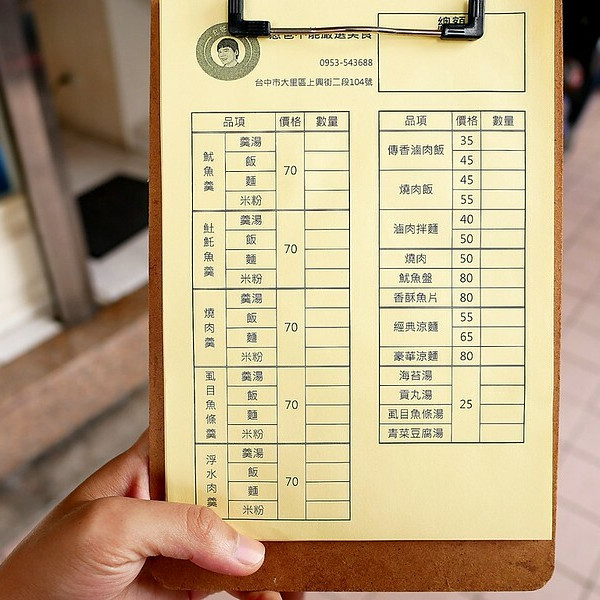 總額
0953-543688
台中市大里區上興街二段104號
品項 價格 數量
魷魚羹 羹湯 70
飯
麵
米粉
魠魚羹 羹湯 70
飯
麵
米粉
燒肉羹 羹湯 70
飯
麵
米粉
虱目魚條羹 羹湯 70
飯
麵
米粉
浮水肉羹 羹湯 70
飯
麵
米粉
品項 價格 數量
傳香滷肉飯 35
45
燒肉飯 45
55
滷肉拌麵 40
50
燒肉 50
魷魚盤 80
香酥魚片 80
經典涼麵 55
65
豪華涼麵 80
海苔湯 25
貢丸湯
虱目魚條湯
青菜豆腐湯